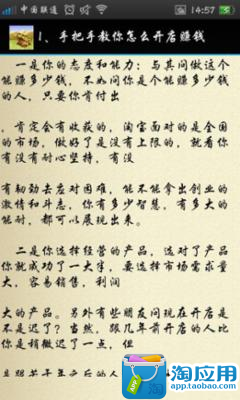 中国联通
14:57
1、手把手教你怎么开店赚钱
一是你的态度和能力：与其问做这个
能赚多少钱，不如问你是个能赚多少钱
的人，只要你肯付出
，肯定会有收获的，淘宝面对的是全国
的市场，做好了是没有上限的，就看你
有没有耐心坚持，有没
有韧劲去应对困难，能不能拿出创业的
激情和斗志，你有多少智慧，有多大的
能耐，都可以展现出来。
二是你选择经营的产品，选对了产品
你就成功了一大半，要选择市场需求量
大，容易销售，利润
大的产品。另外有些朋友问现在开店是
不是迟了？当然，跟几年前开店的人比
你是稍微迟了一点，但
淘应用
app.taobao.com